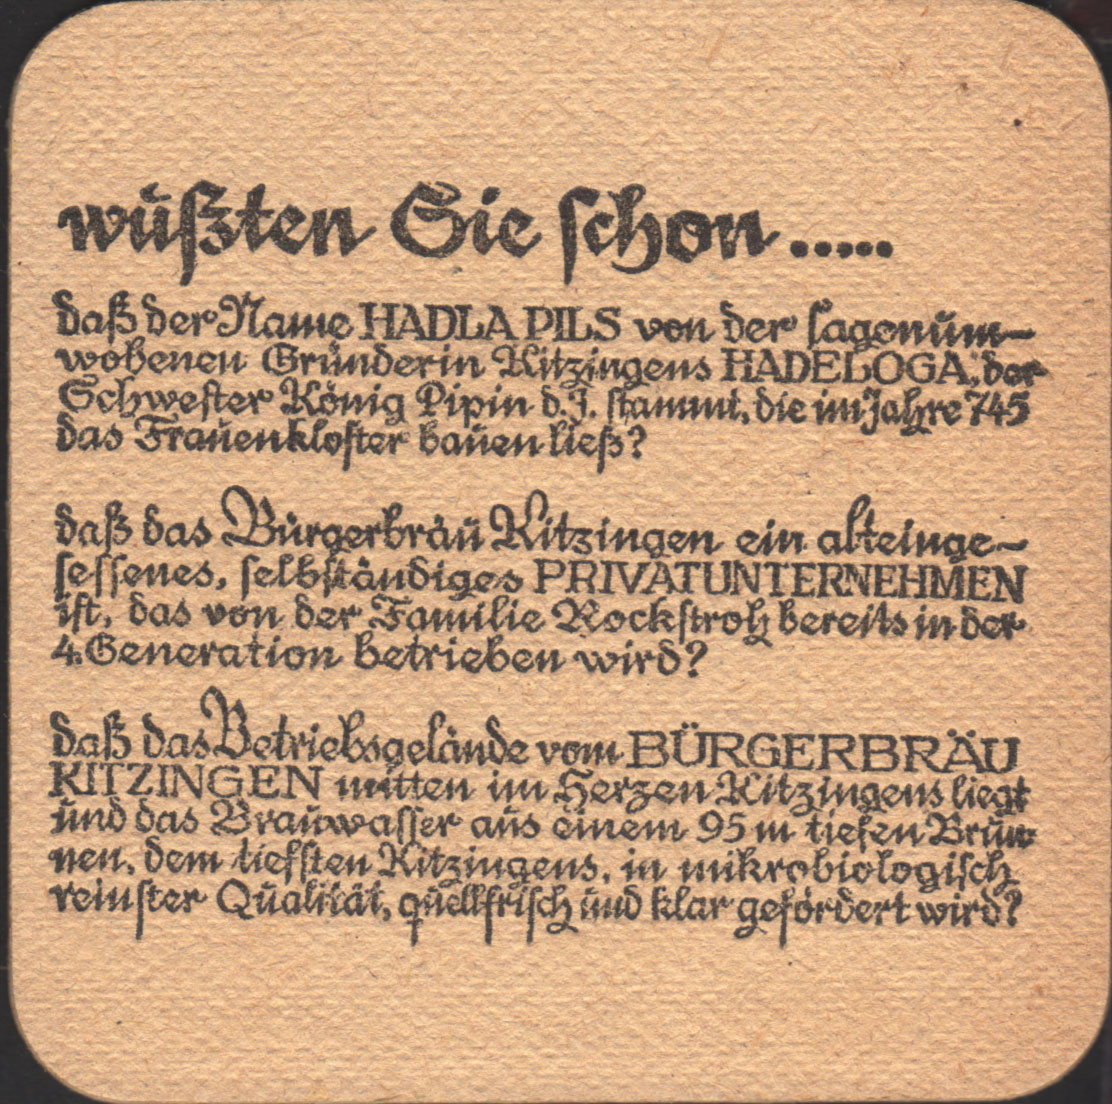 wüßten Sie schon .....
daß der Name HADLA PILS von der sagenum-
wobenen Gründerin Kitzingens HADELOGA, der
Schwester König Pipin d. J. stammt, die im Jahre 745
das Frauenkloster bauen ließ?
daß das Bürgerbräu Kitzingen ein alteinge-
sessenes, selbständiges PRIVATUNTERNEHMEN
ist, das von der Familie Rockstroh bereits in der
4. Generation betrieben wird?
daß das Betriebsgelände vom BÜRGERBRÄU
KITZINGEN mitten im Herzen Kitzingens liegt
und das Brauwasser aus einem 95 m tiefen Brun-
nen, dem tiefsten Kitzingens, in mikrobiologisch
reinster Qualität, quellfrisch und klar gefördert wird?